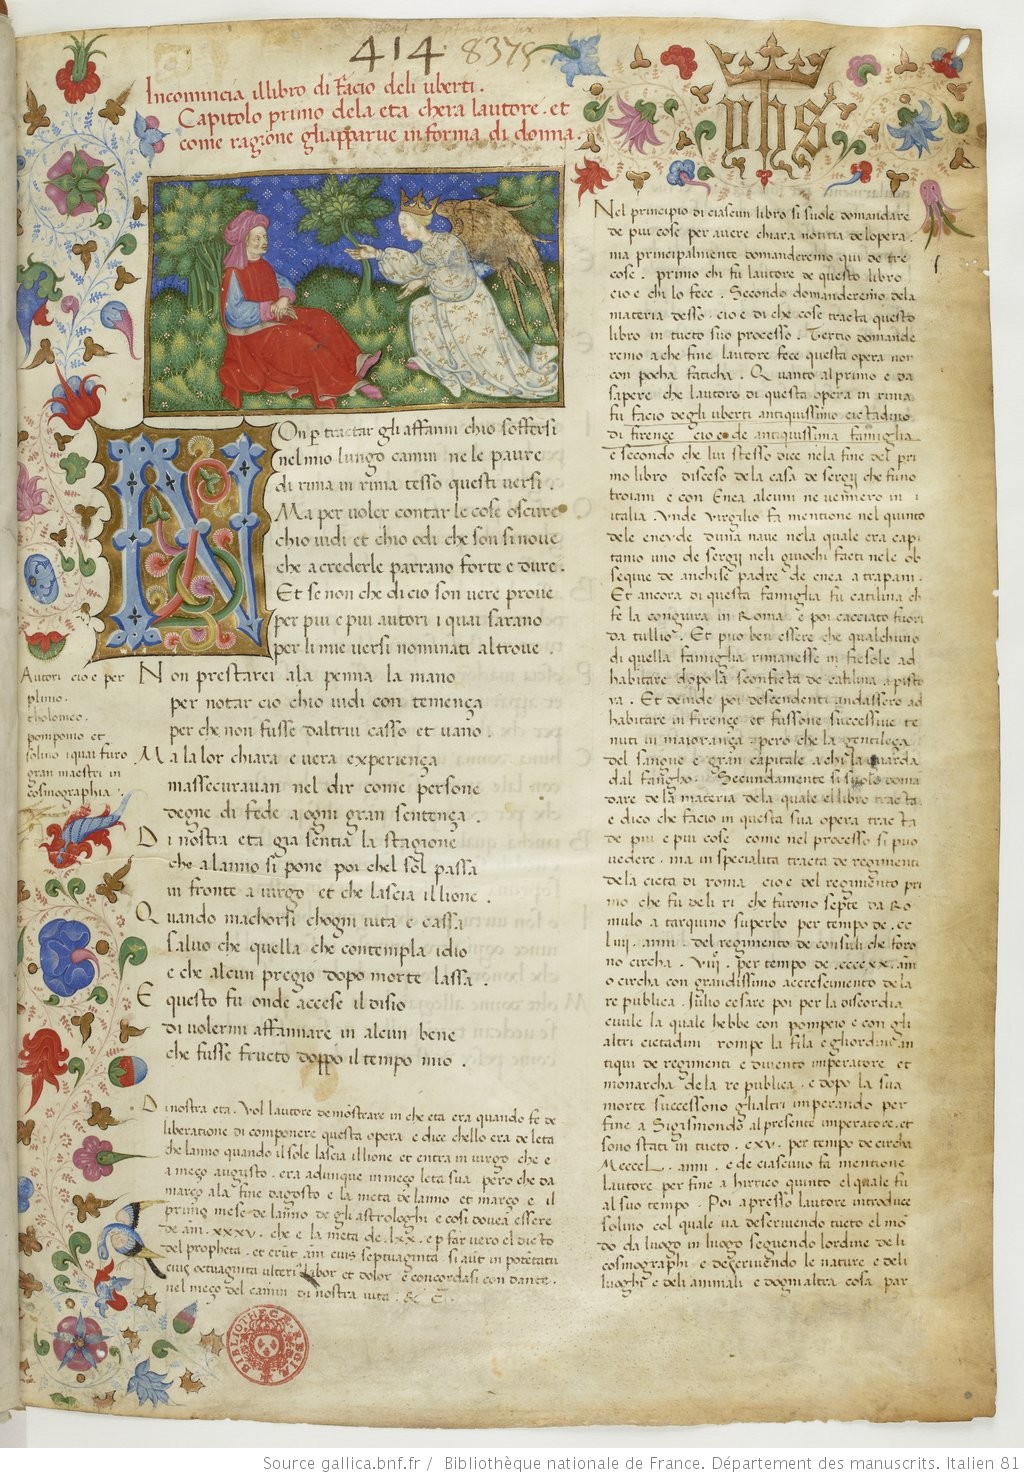 414. 8375
Incomincia il libro di facio deli uberti.
Capitolo primo dela eta chera lautore. et
come ragione gliapparue in forma di donna.
yhs
Non p tractar gli affanni chio soffersi
nel mio lungo camin ne le paure
di rima in rima tesso questi uersi.
Ma per uoler contar le cose oscure
chio uidi et chio odi che son si noue
che a crederle parrano forte e dure.
Et se non che di cio son uere proue
per piu e piu autori i quai sarano
per li mie uersi nominati altroue.
Non prestarei ala penna la mano
per notar cio chio uidi con temença
per che non fusse daltrui casso et uano.
Ma la lor chiara e uera experiença
massecurauan nel dir come persone
degne di fede a ogni gran sentença.
Di nostra eta gia sentia la stagione
che a lanno si pone poi chel sol passa
in fronte a uirgo et che lascia il lione.
Quando machorsi chogni uita e cassa
saluo che quella che contempla idio
e che alcun pregio dopo morte lassa.
E questo fu onde accese il disio
di uolermi affannare in alcun bene
che fusse fructo doppo il tempo mio.
Autori cio e per
plinio.
tholomeo.
pomponio et
solino i quai furo
gran maestri in
cosmographia.
Di nostra eta. Vol lautore demostrare in che eta era quando fe de
liberatione di componere questa opera e dice chello era de leta
che lanno quando il sole lascia il lione et entra in uirgo che e
a meço augusto. era adunque in meço leta sua pero che da
março ala fine dagosto e la meta de lanno et março e il
primo mese de lanno de gli astrologhi e cosi douea essere
de ãni .xxxv. che e la meta de .lxx. e p far uero el dicto
del propheta. et
nel meço del camin di nostra uita. &c.
Nel principio di ciascun libro si suole domandare
de piu cose per auere chiara notitia delopera.
ma principalmente domanderemo qui de tre
cose. primo chi fu lautore de questo libro
cio e chi lo fece. Secondo domanderemo dela
materia desso. cio e di che cose tracta questo
libro in tucto suo processo. Tertio domande
remo a che fine lautore fece questa opera non
con pocha faticha. Quanto al primo e da
sapere che lautore di questa opera in rima
fu facio degli uberti antiquissimo cictadino
di firençe cio e de antiquissima famiglia
e secondo che lui stesso dice nela fine del pri
mo libro disceso de la casa de sergij che funo
troiani e con Enea alcuni ne uennero in
italia. Vnde uirgilio fa mentione nel quinto
dele eneyde duna naue nela quale era capi
tanio uno de sergij neli giuochi facti nele ob
seque de anchise padre de enea a trapani.
Et ancora di questa famiglia fu catilina ch
fe la congiura in Roma e poi cacciato fuori
da tullio. Et puo ben essere che qualchuno
di quella famiglia rimanesse in fiesole ad
habitare dopo la sconficta de catilina a pisto
ya. Et deinde poi descendenti andassero ad
habitare in firençe et fussono successiue te
nuti in maiorança. pero che la gentileça
del sangue e gran capitale a chi la guarda
dal fangho. Secundamente si suole doma
dare dela materia dela quale el libro tracta.
e dico che facio in questa sua opera tracta
de piu e piu cose come nel processo si puo
uedere. ma in specialita tracta de regimenti
de la cicta di roma cio e del regimento pri
mo che fu deli ri che furono septe da Ro
mulo a tarquino superbo per tempo de .cc
liiij. anni. del regimento de consuli che foro
no circha
o circha con grandissimo accrescimento de la
re publica. Iulio cesare poi per la discordia
ciuile la quale hebbe con pompeio e con gli
altri cictadini rompe la fila e ghordini an
tiqui de regimenti e diuento imperatore et
monarcha dela re publica. e dopo la sua
morte successono gli altri imperando per
fine a Sigismondo al presente imperatore. et
sono stati in tucto .cxv. per tempo de circha
Mccccl. anni. e de ciascuno fa mentione
lautore per fine a hirrico quinto el quale fu
al suo tempo. Poi apresso lautore introduce
solino col quale ua descriuendo tucto el mo
do da luogo in luogo seguendo lordine deli
cosmographi e descriuendo le nature e deli
luoghi e deli animali e dogni altra cosa par
BIBLIOTHECÆ REGIÆ
Source gallica.bnf.fr / Bibliothèque nationale de France. Département des manuscrits. Italien 81